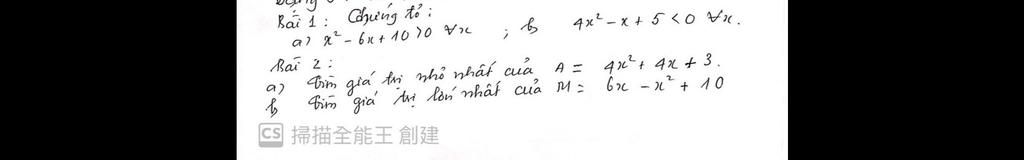 Bài 1 : Chứng tỏ :
a) x² - 6x + 10 > 0 ∀x ; b 4x² - x + 5 < 0 ∀x.
Bài 2 :
a) Tìm giá trị nhỏ nhất của A = 4x² + 4x + 3.
b Tìm giá trị lớn nhất của M = 6x - x² + 10
CS 掃描全能王 創建